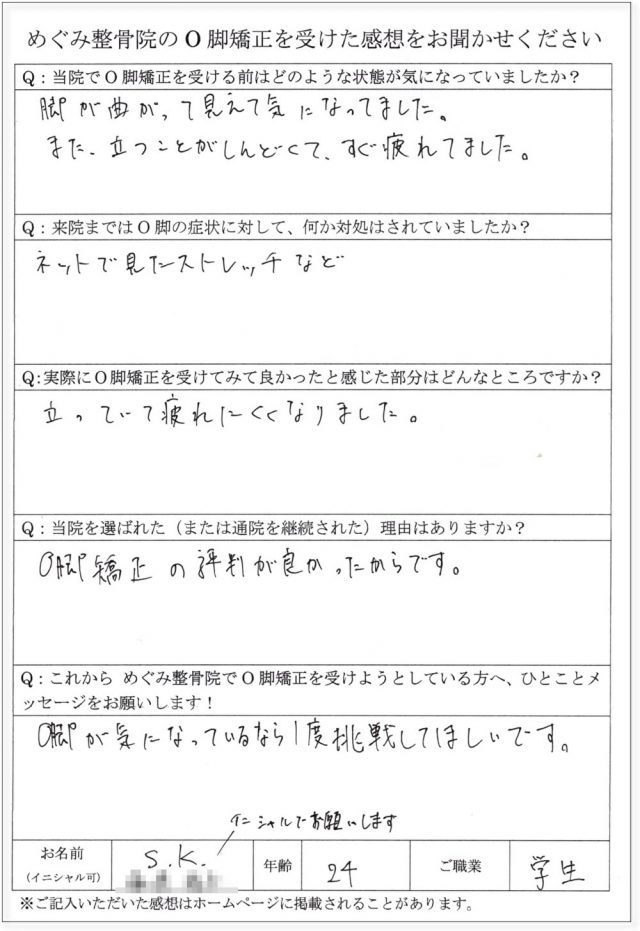 めぐみ整骨院のO脚矯正を受けた感想をお聞かせください
Q：当院でO脚矯正を受ける前はどのような状態が気になっていましたか？
脚が曲がって見えて気になってました。
また、立つことがしんどくて、すぐ疲れてました。
Q：来院まではO脚の症状に対して、何か対処はされていましたか？
ネットで見たストレッチなど
Q:実際にO脚矯正を受けてみて良かったと感じた部分はどんなところですか？
立っていて疲れにくくなりました。
Q：当院を選ばれた（または通院を継続された）理由はありますか？
O脚矯正の評判が良かったからです。
Q：これから めぐみ整骨院でO脚矯正を受けようとしている方へ、ひとことメ
ッセージをお願いします！
O脚が気になっているなら1度挑戦してほしいです。
イニシャルでお願いします
お名前
（イニシャル可）
S.K.
年齢
24
ご職業
学生
※ご記入いただいた感想はホームページに掲載されることがあります。